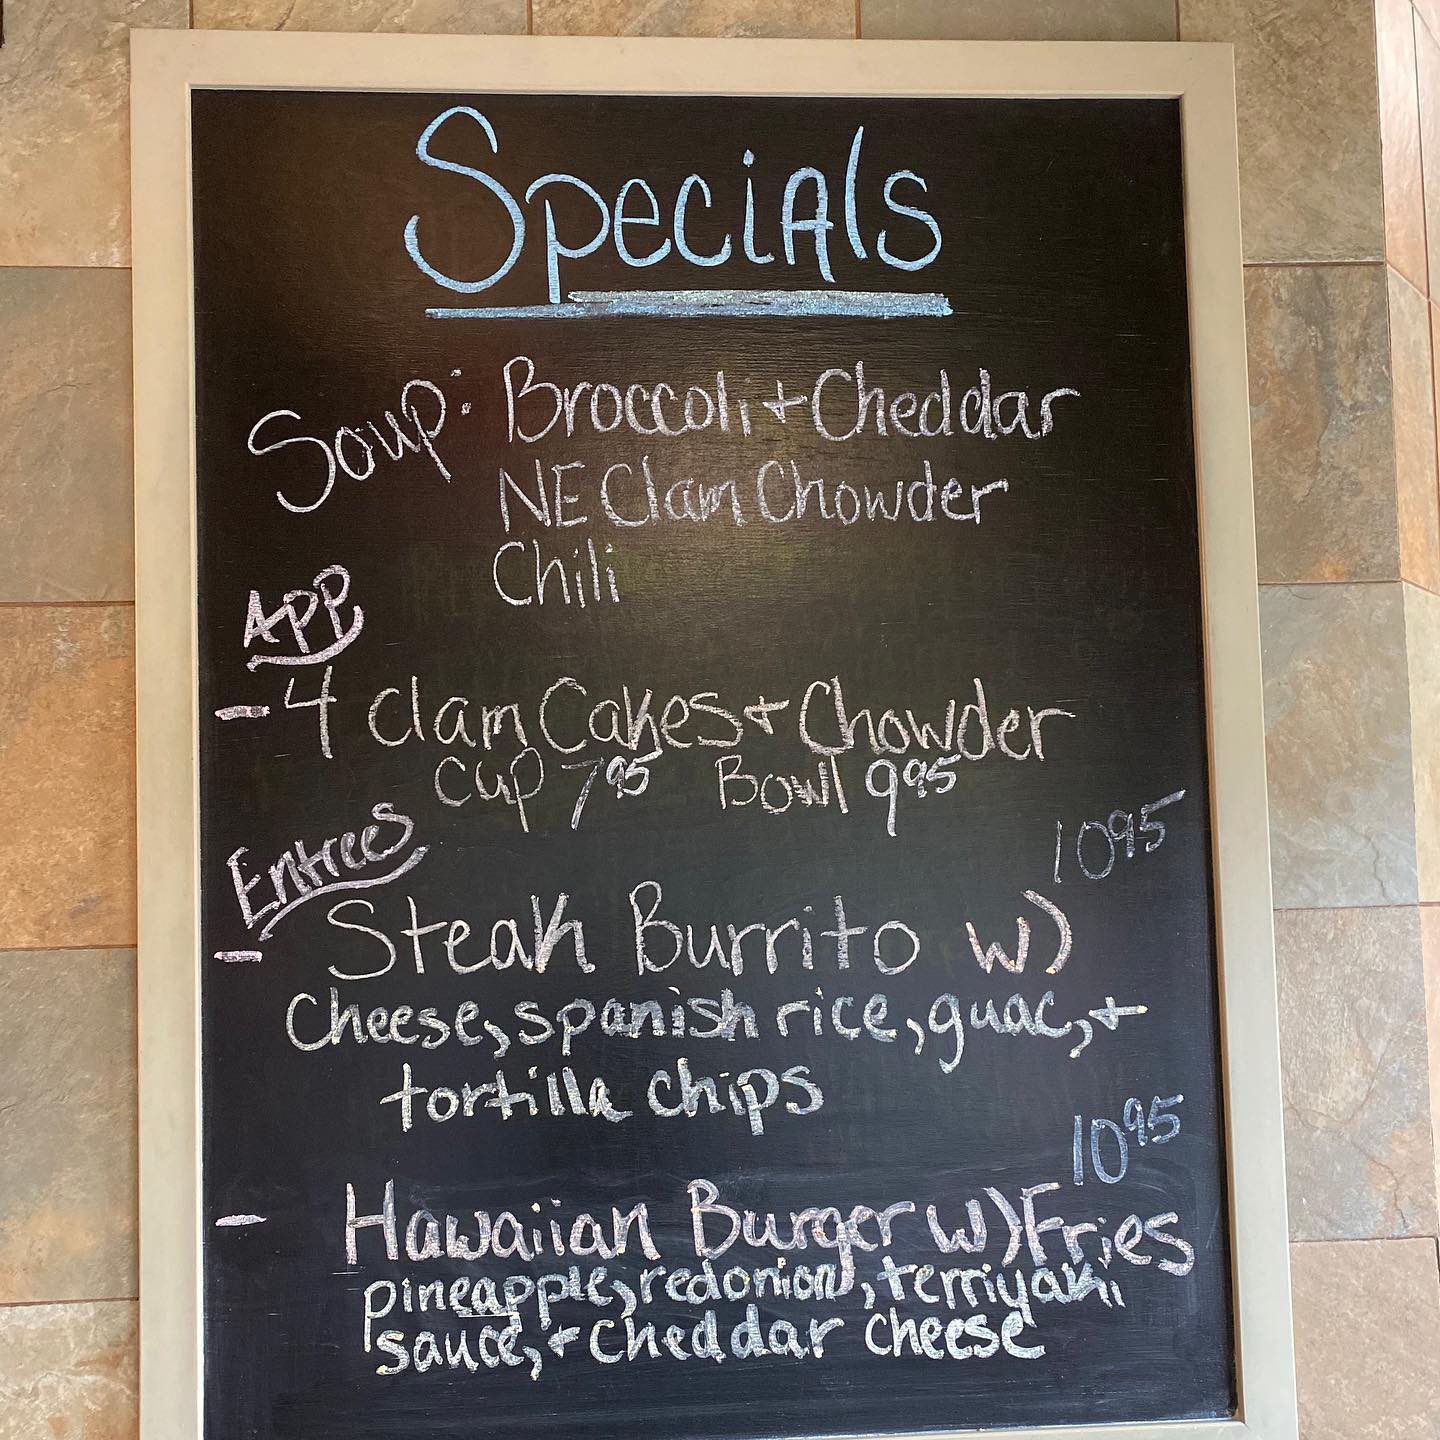 Specials
Soup: Broccoli + Cheddar
NE Clam Chowder
Chili
APP
- 4 Clam Cakes + Chowder
Cup 7 95 Bowl 9 95
Entrees
10 95
- Steak Burrito w)
Cheese, spanish rice, guac, +
tortilla chips
10 95
- Hawaiian Burger w) Fries
pineapple, red onion, terriyaki
sauce, + cheddar cheese